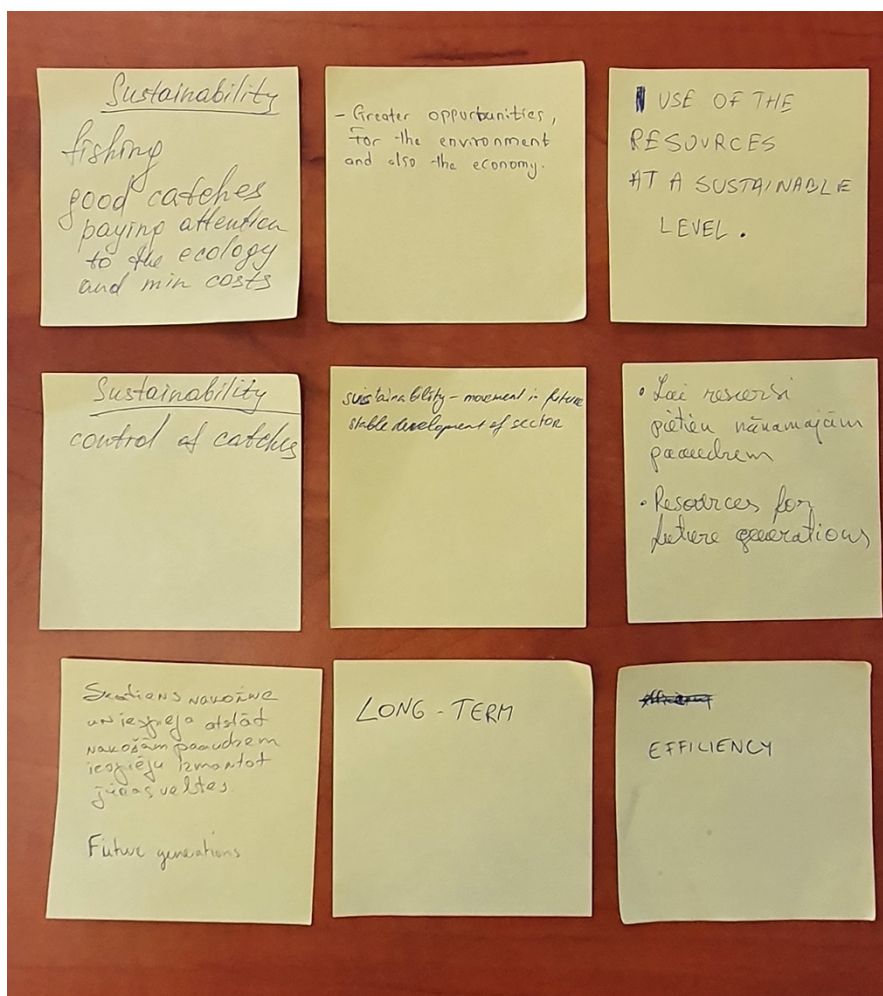 Sustainability
fishing
good catches
paying attention
to the ecology
and min costs
- Greater oppurtunities,
For the environment
and also the economy.
USE OF THE
RESOURCES
AT A SUSTAINABLE
LEVEL.
Sustainability
control of catches
sustainability – movement in future
stable development of sector
• Lai resursi
nākamajām
paaudzem
• Resources for
future generations
Skatiens
un iespēja atstāt
nakošām paaudzem
iespēju izmantot
jūras veltes
Future generations
LONG - TERM
efficiency
EFFICIENCY